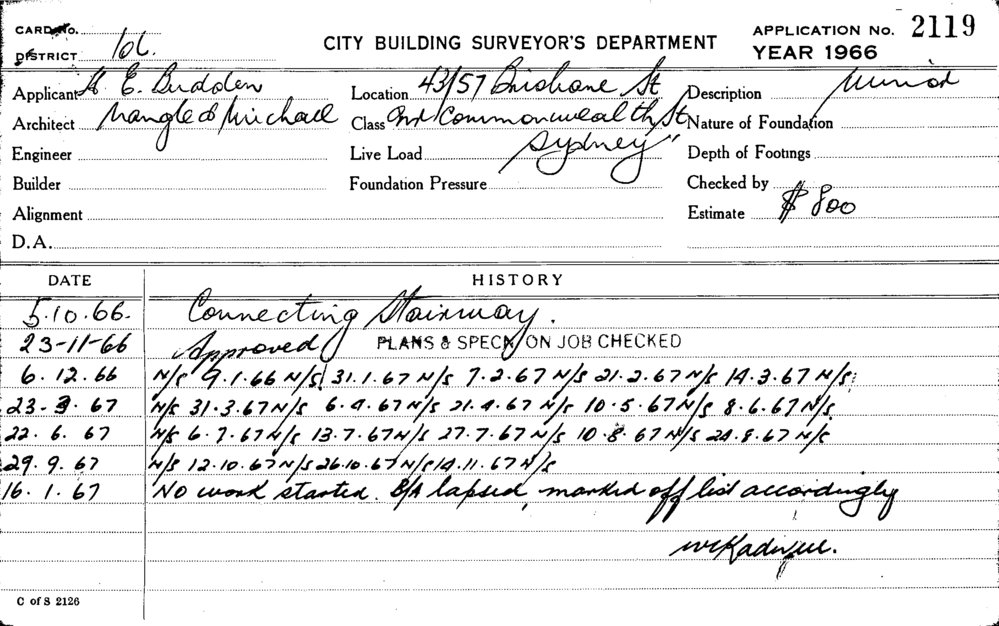 CARD No.
APPLICATION No. 2119
DISTRICT
CITY BUILDING SURVEYOR'S DEPARTMENT
YEAR 1966
Applicant H. E. Budden
Location 43/57 Brisbane St
Description Minor
Architect Mangle & Michael
Class and Commonwealth St
Nature of Foundation
Engineer
Live Load Sydney
Depth of Footings
Builder
Foundation Pressure
Checked by
Alignment
Estimate $ 800
D.A.
DATE HISTORY
5.10.66. Connecting Stairway.
23-11-66 Approved PLANS & SPECN ON JOB CHECKED
6.12.66 N/S 9.1.66 N/S 31.1.67 N/S 7.2.67 N/S 21.2.67 N/S 14.3.67 N/S
23-3.67 N/S 31.3.67 N/S 6.4.67 N/S 21.4.67 N/S 10.5.67 N/S 8.6.67 N/S
22.6.67 N/S 6.7.67 N/S 13.7.67 N/S 27.7.67 N/S 10.8.67 N/S 24.8.67 N/S
29.9.67 N/S 12.10.67 N/S 26.10.67 N/S 14.11.67 N/S
16.1.67 No work started. B/A lapsed, marked off list accordingly
C of S 2126